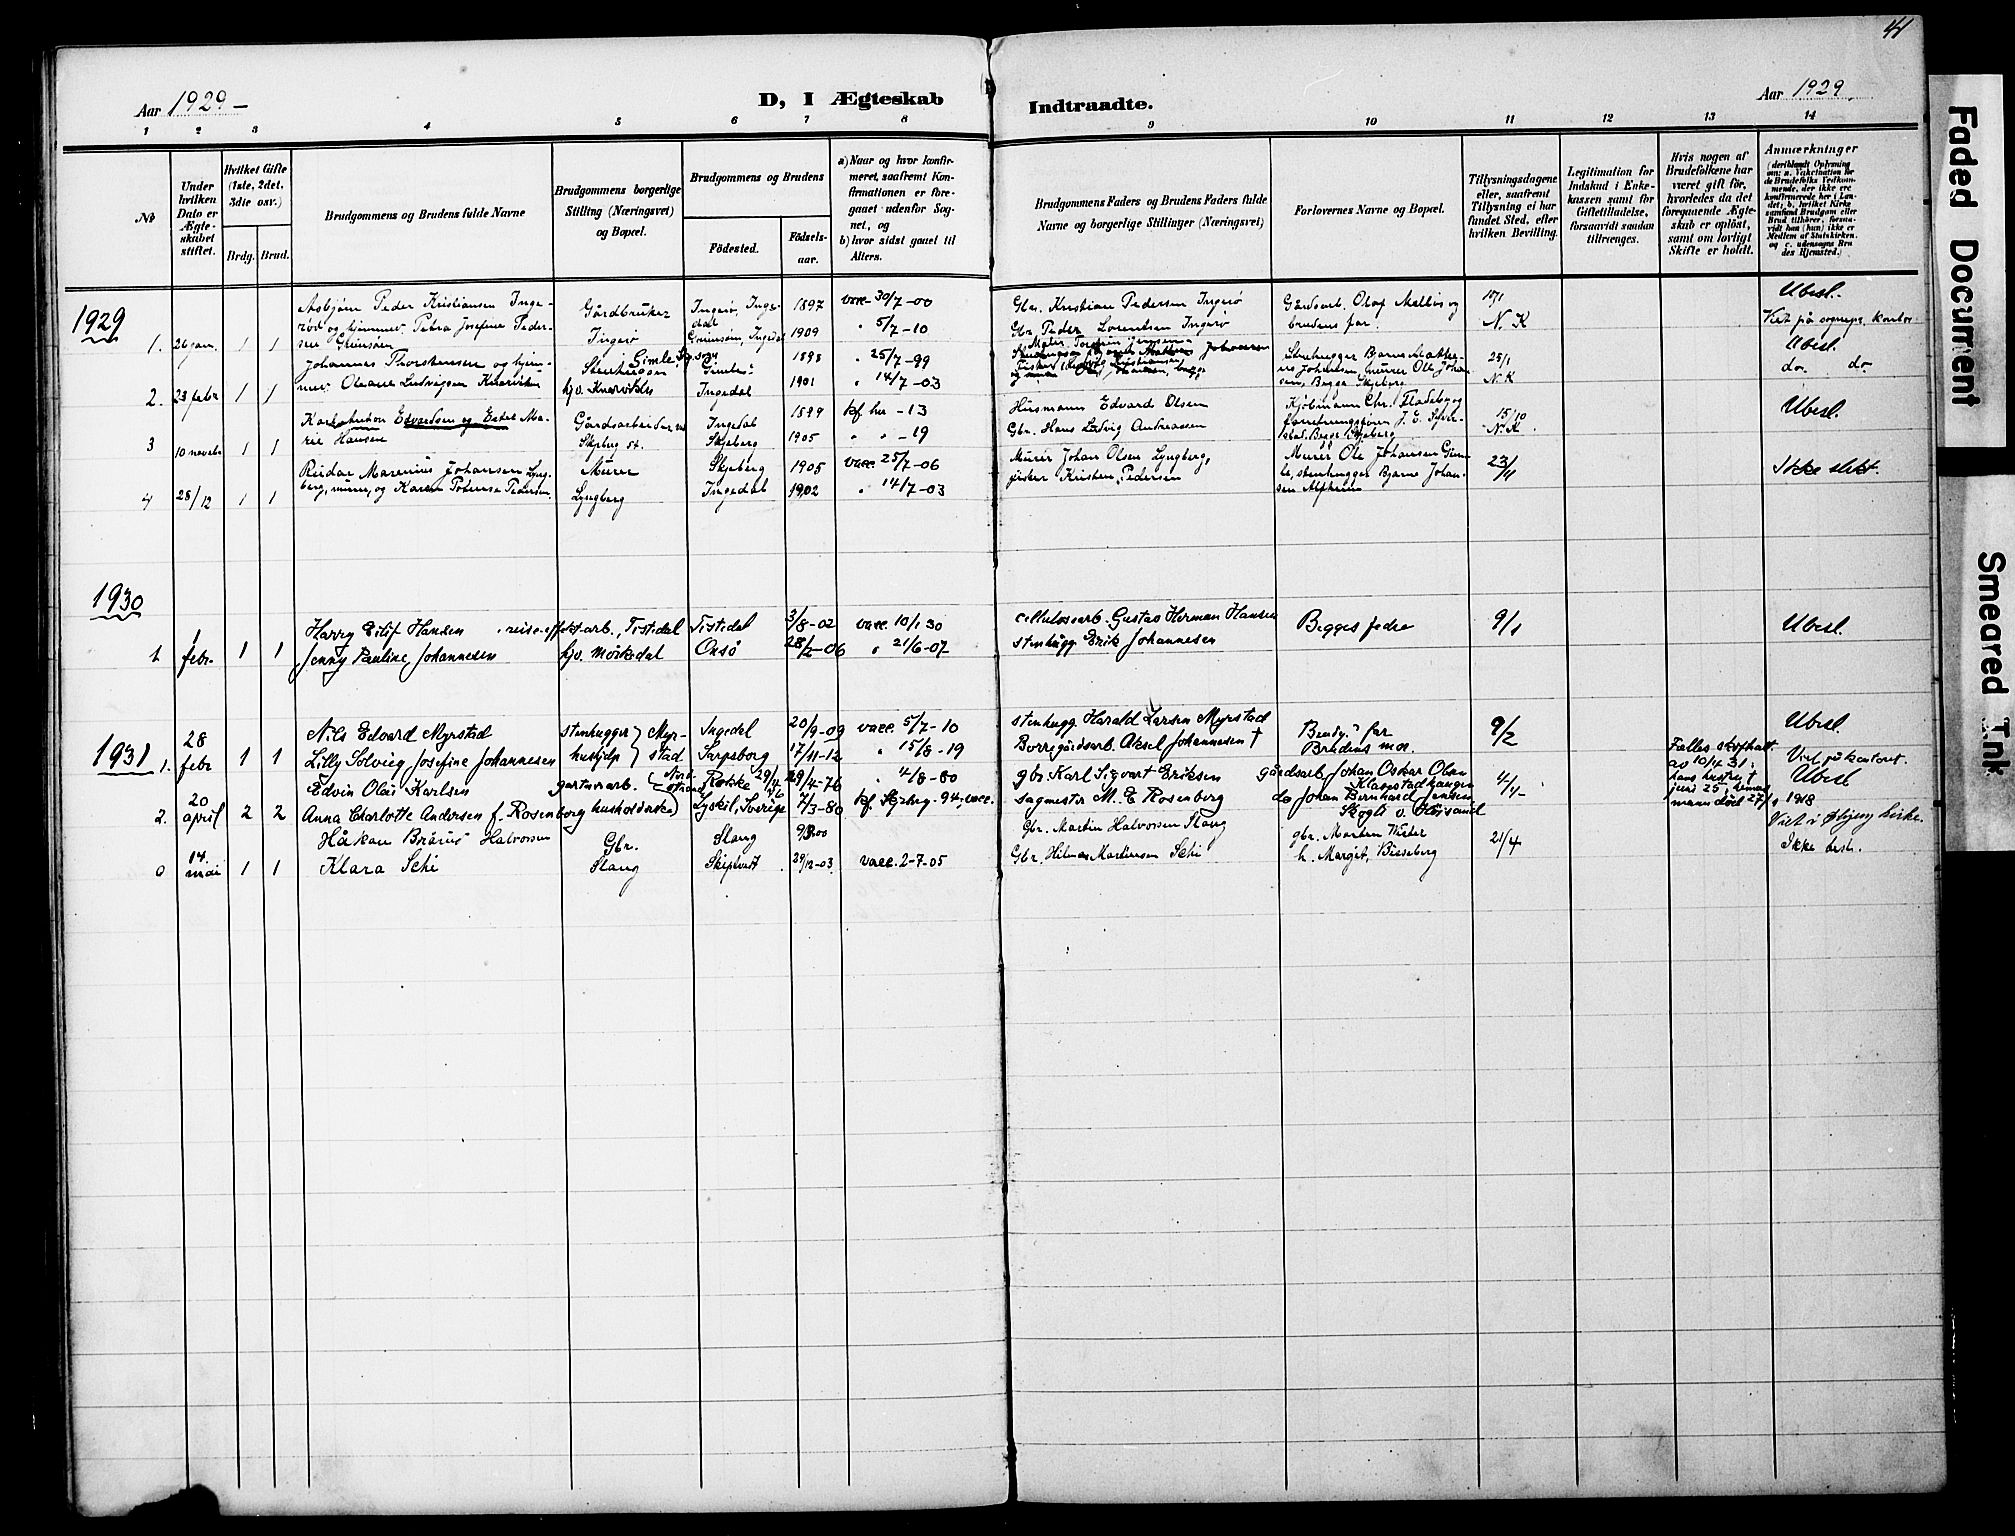 41
Aar 1929 –
D, I Ægteskab
Indtraadte.
Aar 1929.
1 2 3 4 5 6 7 8 9 10 11 12 13 14
No
Under hvilken Dato er Ægteskabet stiftet.
Hvilket Gifte (1ste, 2det, 3die osv.)
Brdg. Brud.
Brudgommens og Brudens fulde Navne
Brudgommens borgerlige Stilling (Næringsvei) og Bopæl.
Brudgommens og Brudens
Födested.
Födselsaar.
a) Naar og hvor konfirmeret, saafremt Konfirmationen er foregaaet udenfor Sognet, og
b) hvor sidst gaaet til Alters.
Brudgommens Faders og Brudens Faders fulde Navne og borgerlige Stillinger (Næringsvei)
Forlovernes Navne og Bopæl.
Tillysningsdagene eller, saafremt Tillysning ei har fundet Sted, efter hvilken Bevilling.
Legitimation for Indskud i Enkekassen samt for Giftetilladelse, forsaavidt saadan tiltrænges.
Hvis nogen af Brudefolkene har været gift för, hvorledes da det foregaaende Ægteskab er oplöst, samt om lovligt Skifte er holdt.
Anmærkninger
(deriblandt Oplysning om: a. Vakcination for de Brudefolks Vedkommende, der ikke ere konfirmerede her i Landet; b. hvilket Kirkesamfund Brudgom eller Brud tilhörer, forsaavidt han (hun) ikke er Medlem af Statskirken, og c. udensogns Brudes Hjemsted.)
1929
1. 26 jan. 1 1 Asbjørn Peder Kristiansen Ingerød og hjemmev. Petra Josefine Pedersen Grimsøen
Gårdbruker Ingerø
Ingerø, Ingedal 1897 vacc. 30/7-00
Grimsøen, Ingedal 1909 " 5/7-10
Gbr. Kristian Pedersen Ingerø
Gbr. Peder Lorentsen Ingerø
Gårdsarb. Olaf og brudens far.
N. K
Ubesl.
Viet på sognepr. kontor.
2. 23 febr 1 1 Johannes Thorstensen og hjemmev. Oleane Ludvigsen
1898 " 25/7-99
Ingedal 1901 " 14/7-03
Stenhugger Bjarne Johansen, murer Ole Johansen, Begge Skjeberg
25/1
N. K
Ubesl
do. do.
3 10 novebr 1 1 Karl Anton Edvardsen og Ester Marie Hansen
Gårdsarbeider
Skjebg st.
Ingedal 1899 kf. her -13
Skjeberg 1905 " " -19
Husmann Edvard Olsen
Gbr. Hans Ludvig Andreassen
Kjøbmann Chr. Begge Skjeberg
15/10
N. K.
Ubesl.
4 28/12 1 1 Reidar Marenius Johansen Lyngberg, murer, og Karen Pedersen
Murer
Lyngberg
Skjeberg 1905 vacc. 25/7-06
Ingedal 1902 " 14/7-03
Murer Johan Olsen Lyngberg,
fisker Kristen Pedersen
Murer Ole Johansen stenhugger Bjarne Johansen
23/11
Ikke slekt.
1930
1. 1 febr. 1 1 Harry Eilif Hansen
Jenny Pauline Johannesen
Tistedal Tistedal 3/8-02 vacc. 10/1 30
hjv. Mørkedal Onsø 28/2-06 " 21/6-07
cellulosearb. Gustav Herman Hansen
stenhugg. Erik Johannesen
Begges fedre
9/1
Ubesl.
1931
1. 28 febr 1 1 Nils Edvard Myrstad
Lilly Solvieg Josefine Johannesen
stenhugger } Myrstad
hushjelp
Ingedal 20/9-09 vacc. 5/7-10
Sarpsborg 17/11-12 " 15/8-19
stenhugg. Harald Larsen Myrstad
Borregårdsarb. Aksel Johannesen †
far
Brudens mor.
9/2
Ubesl.
Viet på kontoret.
2. 20 april 2 2 Edvin Olai Karlsen
Anna Charlotte Andersen f. Rosenborg
gartnerarb.
29/4-76 " 4/8-80
Lysekil, Sverige 7/3-80 kf. Skjebrg. -94, vacc.
gbr. Karl Sigvart Eriksen
sagmester M. E Rosenberg
gårdsarb. Johan Oskar Olsen
do Johan Bernhard Jensen
4/4-
Felles skifteatt. av 10/4 31: hans hustru † juni 25, hennes mann død 27/9 1918
Ubesl
Viet i kirke.
0 14. mai 1 1 Håkon Halvorsen
Klara Schi
Gbr.
Slang
Slang
Skiptvet 29/12-03 vacc. 2-7-05
Gbr. Martin Halvorsen Slang
Gbr. Hilmar Martinsen Schi
gbr. Morten
h. Margit,
21/4
Ikke besl.
Faded Document
Smeared Ink